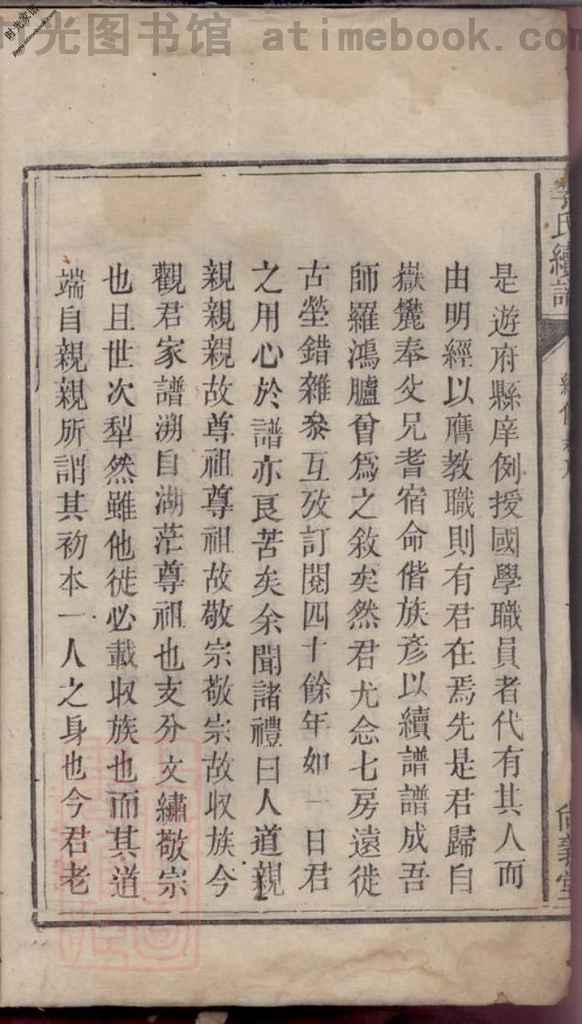 时光图书馆 atimebook.com
李氏續譜
尚義堂
是遊府縣庠例授國學職員者代有其人而
由明經以膺教職則有君在焉先是君歸自
嶽麓奉父兄耆宿命偕族彥以續譜譜成吾
師羅鴻臚曾為之敘矣然君尤念七房遠徙
古塋錯雜叅互攷訂閱四十餘年如一日君
之用心於譜亦良苦矣余聞諸禮曰人道親
親親親故尊祖尊祖故敬宗敬宗故収族今
觀君家譜溯自湖茫尊祖也支分文繡敬宗
也且世次犁然雖他徙必載収族也而其道
端自親親所謂其初本一人之身也今君老